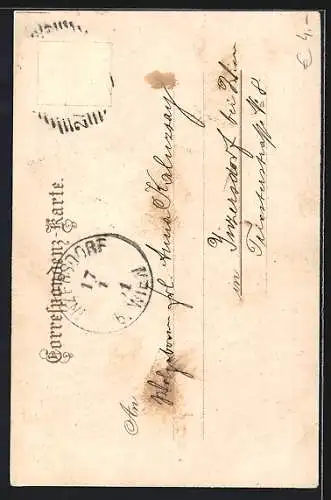 Correspondenz-Karte.
INZERSDORF
17
1
B. WIEN
An
Wohlgeboren Frl. Anna Kaluzsay
in Inzersdorf bei Wien
Triesterstrasse № 8
€ 4,-